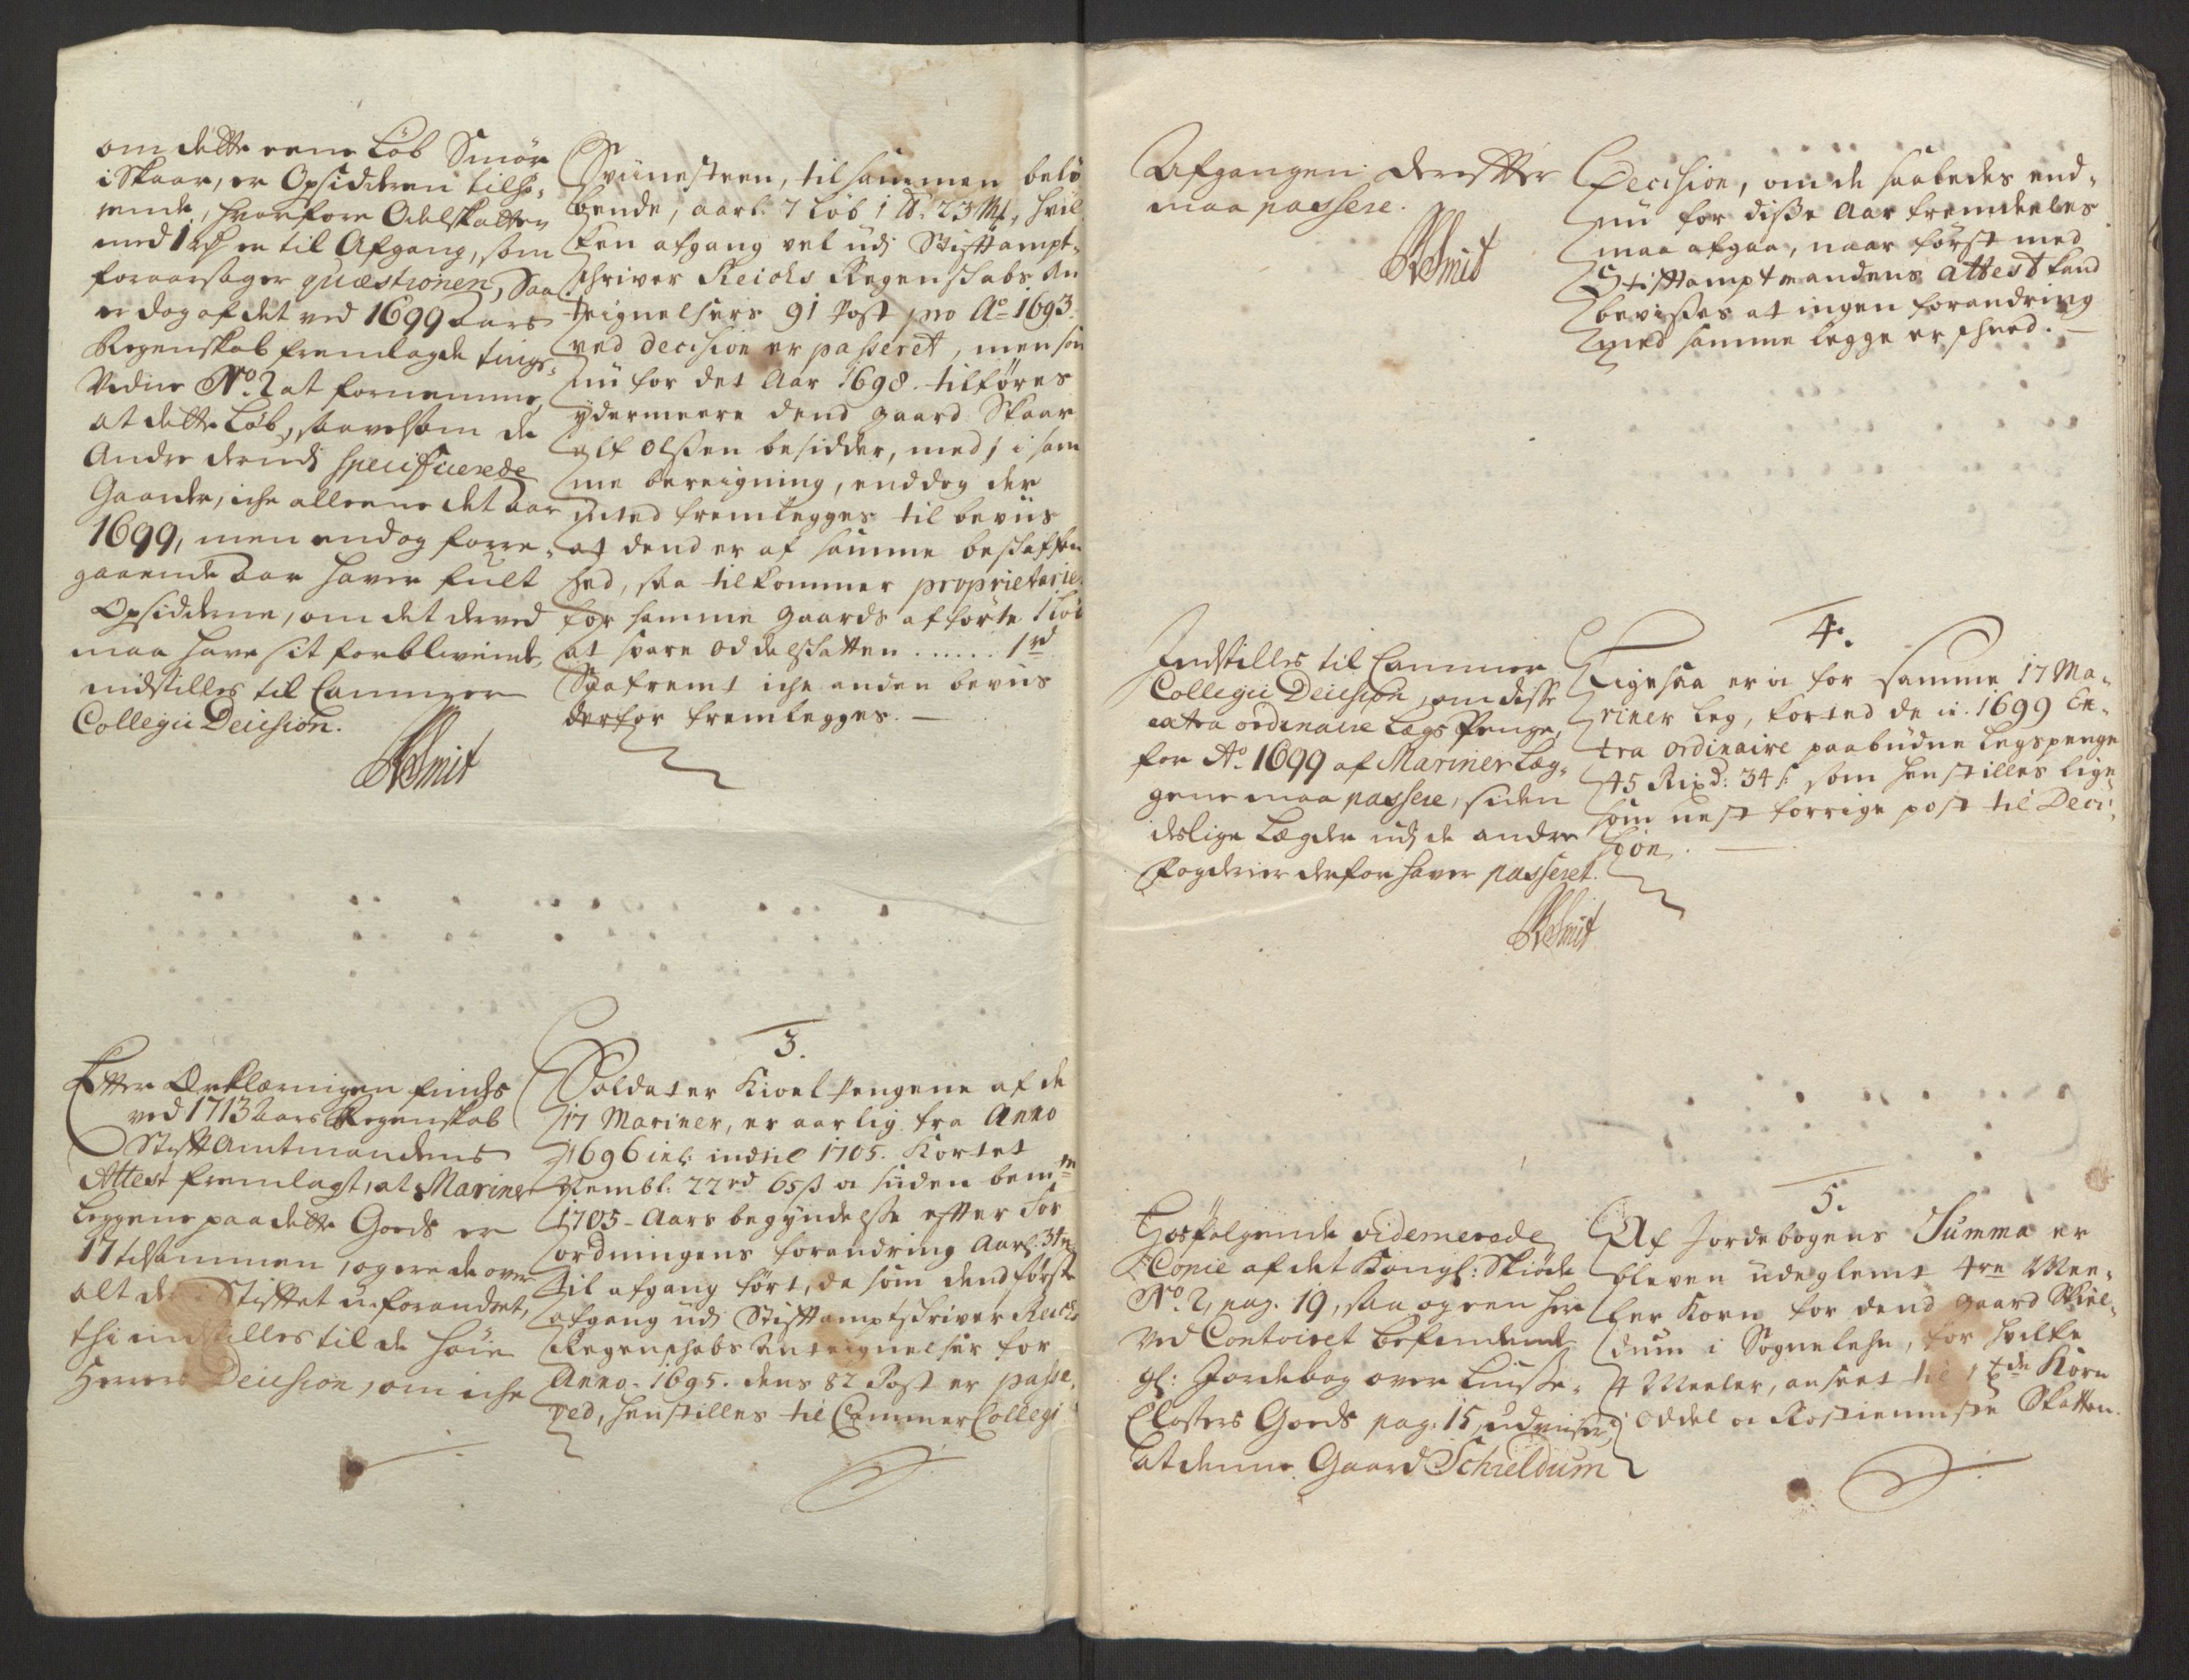 om dette eene Løb Smør
i Skaar, er Opsidderen tilhø-
rende, hvorfore Odelskatten
med 1 rdr er til Afgang, som
foraarsager quæstionen, Saa
er dog af det ved 1699 Aars
Regenskab fremlagde tings-
Vidne No. 2 at fornemme,
at dette Løb, saavelsom de
Andre derudj specificerede
Gaarder, iche alleene det Aar
1699, men endog forre-
gaaende Aar haver fult
Opsidderne, om det derved
maa have sit forblivende,
indstilles til Cammer
Collegii Decision.
RSmit
Sviinesteen, tilsammen belø-
bende, aarl: 7 Løb 1 lb. 23 Mk, hvil-
ken afgang vel udj Stiftampt-
schriver Reichs Regenschabs An-
teignelsers 91 Post pro Ao 1693.
ved decision er passeret, men som
nu for det Aar 1698. tilføres
ydermeere dend gaard Skaar
Elf Olssen besidder, med 1 i sam-
me bereigning, enddog der
inted fremlegges til beviis
at dend er af samme beschaffen-
hed, saa tilkommer proprietarie
for samme gaards afførte 1 Løb
at svare oddelschatten ...... 1 rd
Saafremt iche anden beviis
derfor fremlegges.
3.
Efter Erklæringen findes
ved 1713 Aars Regenskab
Stiftamtmandens
Attest fremlagt, at Mariner
Leggene paa dette Goeds er
17 tilsammen, og ere de over
alt Stiftet uforandret,
thi indstilles til de høie
Herrers Decision, om iche
Soldater Kioel pengene af de
17 Mariner, er aarlig fra Anno
1696 inl: indtil 1705. Kortet
Rembl: 22 rd 65 ß og siden bemte
1705 - Aars begyndelse efter For-
ordningens forandring Aarl: 34
til afgang ført, da som dend første
afgang udj Stiftamptschriver Reichs
Regenschabs Anteignelser for
Anno 1695. dens 82 Post er passe-
red, henstilles til Cammer Collegi
Afgangen derefter
maa passere.
RSmit
Decision, om de saaledes end-
nu for disse Aar fremdeeles
maa afgaa, naar først med
Stiftamptmandens attest kand
bevises at ingen forandring
med samme legge er scheed.
4.
Indstilles til Cammer
Collegii Decision, om disse
extra ordinaire Legs Penge,
for Ao. 1699 af Mariner Leg-
gene maa passere, siden
deslige Legder udj de andre
Fogderier derfor haver passeret.
RSmit
Ligesaa er og for samme 17 Ma-
riner leg, kortet de i 1699 Ex-
tra ordinaire paabudne legspenge
45 Rixd: 34 ß som henstilles lige-
som nest forrige post til Deci-
sion.
5.
Hosfølgende videmerede
Copie af det Kongl: Skiøde
No. 2, pag. 19, saa og een her
ved Contoiret befindende
gl: Jordebog over Lusse-
Closters Goeds pag. 15, udviser,
at denne Gaard Schieldum
Af Jordebogens Summa er
bleven udeglemt 4re Mee-
ler Korn for dend gaard Skiel-
dum i Sognelehn, for hvilke
4 Meeler, anseet til 1 tde Korn
Oddel og Rostieniste Skatten.